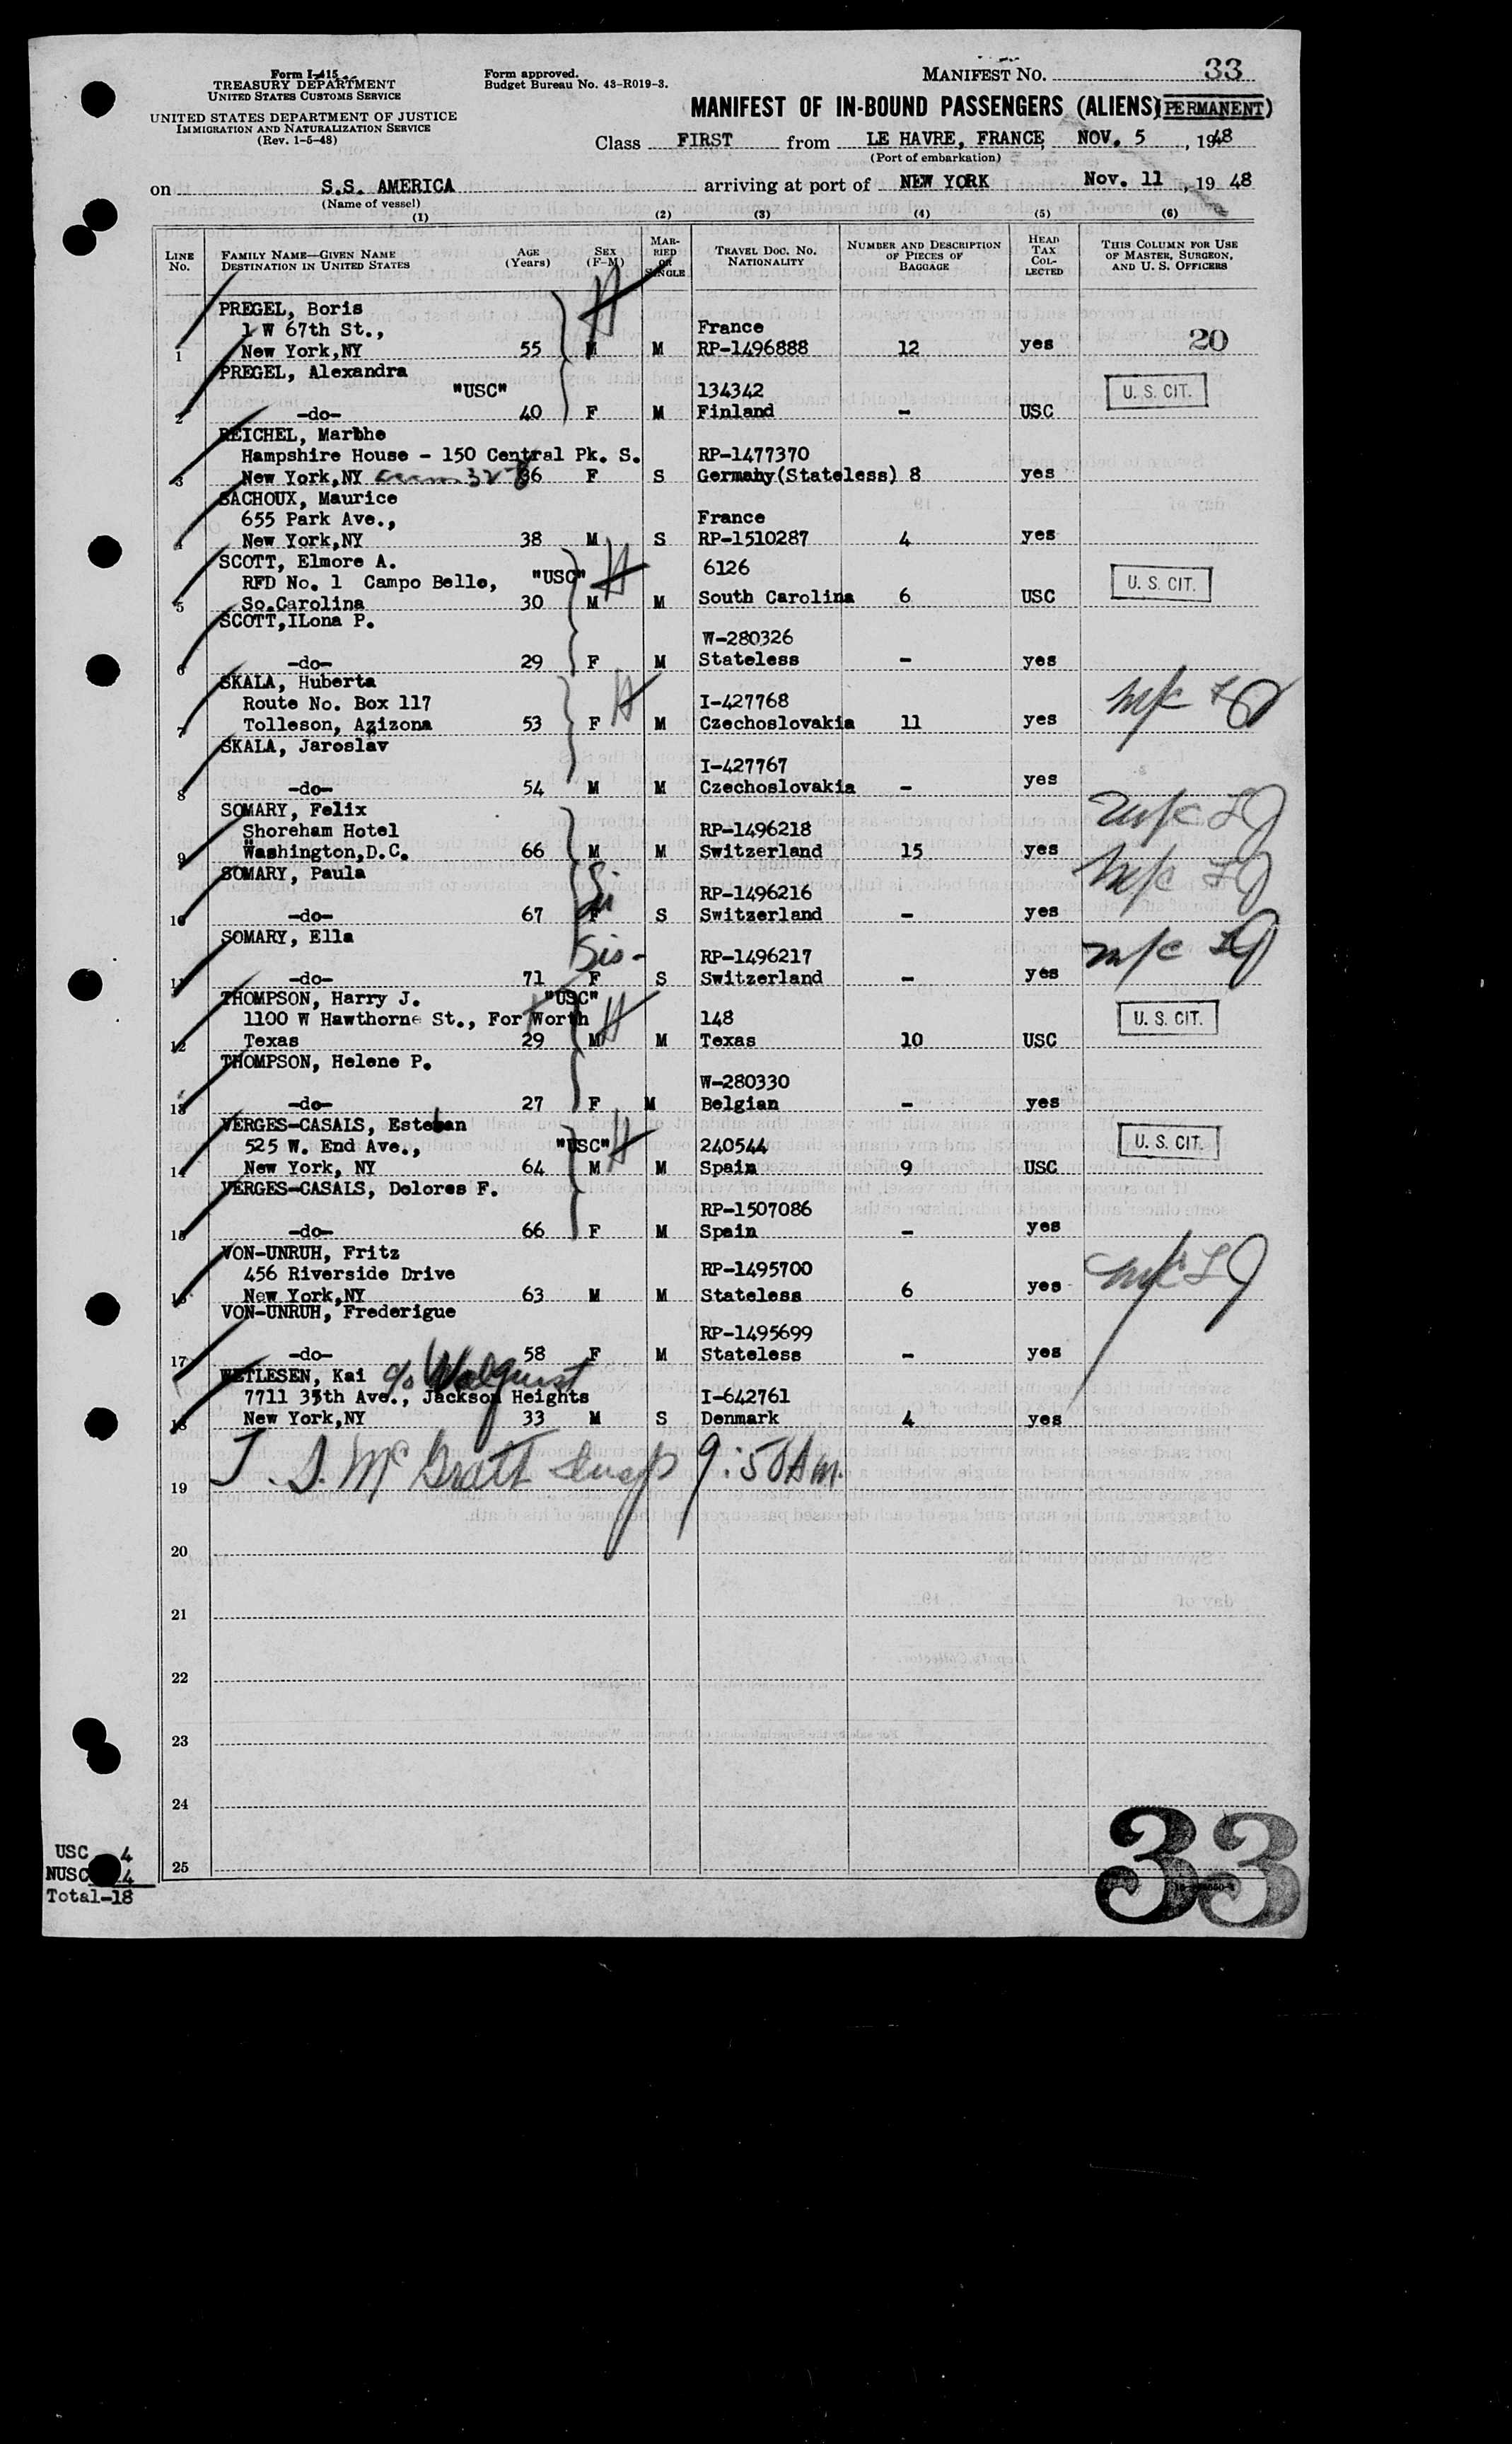 Form I-415
TREASURY DEPARTMENT
UNITED STATES CUSTOMS SERVICE
UNITED STATES DEPARTMENT OF JUSTICE
IMMIGRATION AND NATURALIZATION SERVICE
(Rev. 1-5-48)
Form approved.
Budget Bureau No. 43-R019-3.
MANIFEST NO. 33
MANIFEST OF IN-BOUND PASSENGERS (ALIENS) (PERMANENT)
Class FIRST from LE HAVRE, FRANCE, NOV. 5, 1948
(Port of embarkation)
on S.S. AMERICA arriving at port of NEW YORK Nov. 11, 19 48
(Name of vessel)
(1) (2) (3) (4) (5) (6)
LINE No. FAMILY NAME—GIVEN NAME DESTINATION IN UNITED STATES AGE (Years) SEX (F-M) MARRIED OR SINGLE TRAVEL DOC. NO. NATIONALITY NUMBER AND DESCRIPTION OF PIECES OF BAGGAGE HEAD TAX COLLECTED THIS COLUMN FOR USE OF MASTER, SURGEON, AND U. S. OFFICERS
PREGEL, Boris
1 W 67th St., France
1 New York,NY 55 M M RP-1496888 12 yes 20
PREGEL, Alexandra
"USC" 134342 U. S. CIT.
2 -do- 40 F M Finland - USC
REICHEL, Marthe
Hampshire House - 150 Central Pk. S. RP-1477370
3 New York,NY 36 F S Germany(Stateless) 8 yes
SACHOUX, Maurice
655 Park Ave., France
4 New York,NY 38 M S RP-1510287 4 yes
SCOTT, Elmore A.
RFD No. 1 Campo Belle, "USC" 6126 U. S. CIT.
5 So.Carolina 30 M M South Carolina 6 USC
SCOTT,ILona P.
W-280326
6 -do- 29 F M Stateless - yes
SKALA, Huberta
Route No. Box 117 I-427768
7 Tolleson, Agizona 53 F M Czechoslovakia 11 yes
SKALA, Jaroslav
I-427767
8 -do- 54 M M Czechoslovakia - yes
SOMARY, Felix
Shoreham Hotel RP-1496218
9 Washington,D.C. 66 M M Switzerland 15 yes
SOMARY, Paula
RP-1496216
10 -do- 67 F S Switzerland - yes
SOMARY, Ella
Sis- RP-1496217
11 -do- 71 F S Switzerland - yes
THOMPSON, Harry J. "USC"
1100 W Hawthorne St., For Worth 148 U. S. CIT.
12 Texas 29 M M Texas 10 USC
THOMPSON, Helene P.
W-280330
13 -do- 27 F M Belgian - yes
VERGES-CASALS, Esteban
525 W. End Ave., "USC" 240544 U. S. CIT.
14 New York, NY 64 M M Spain 9 USC
VERGES-CASALS, Dolores F.
RP-1507086
15 -do- 66 F M Spain - yes
VON-UNRUH, Fritz
456 Riverside Drive RP-1495700
16 New York,NY 63 M M Stateless 6 yes
VON-UNRUH, Frederigue
RP-1495699
17 -do- 58 F M Stateless - yes
WETLESEN, Kai c/o Walquist
7711 35th Ave., Jackson Heights I-642761
18 New York,NY 33 M S Denmark 4 yes
J. J. McGrath Insp 9:50 Am.
19
20
21
22
23
24
25
USC 4
NUSC 4
Total-18
33